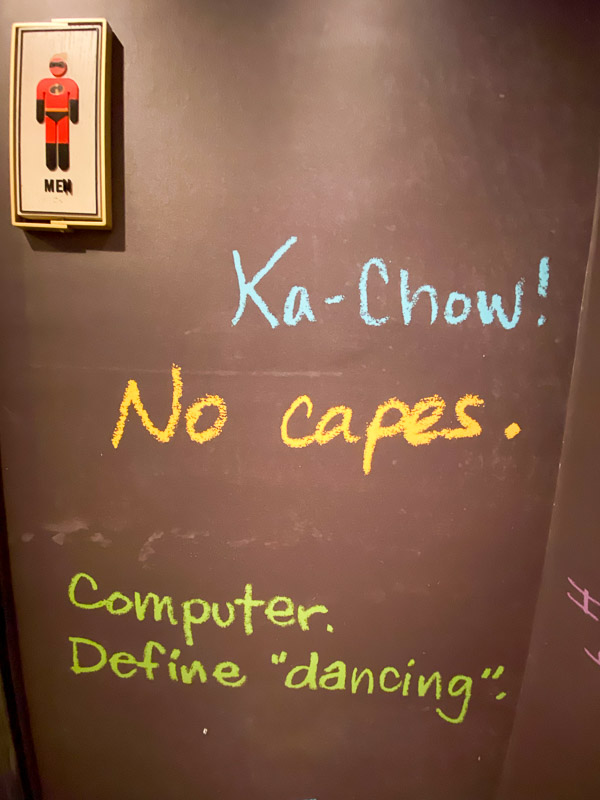 MEN
Ka-Chow!
No capes.
Computer.
Define "dancing".